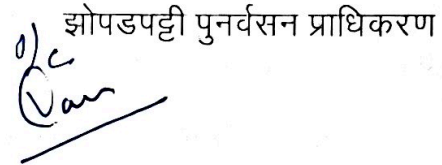 झोपडपट्टी पुनर्वसन प्राधिकरण
o/c